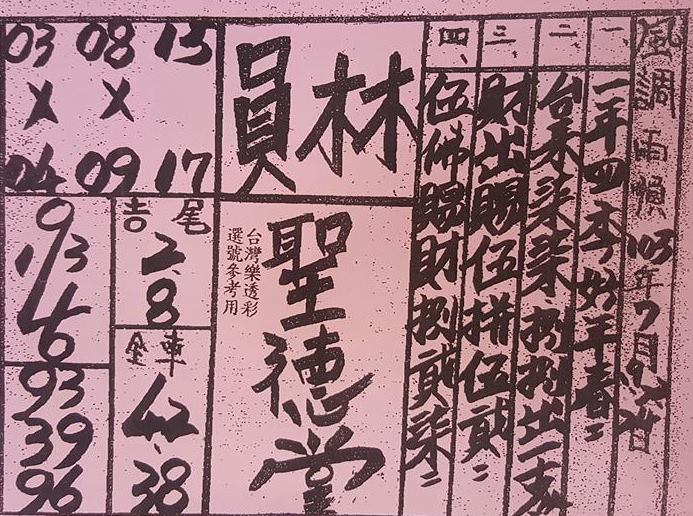 風調雨順103年7月
一、一年四季好平春
二、台來柒柒捌捌出一支
三、財出賜伍拼伍貳
四、伍佛賜財捌貳柒
員林
聖德堂
台灣樂透彩
選號參考用
03 08 15
X X
04 09 17
吉尾
2.8
全車
42.38
93
39
96